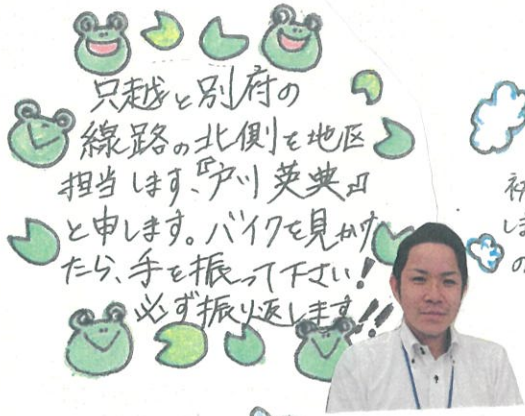 只越と別府の
線路の北側を地区
担当します、『戸川 英典』
と申します。バイクを見かけ
たら、手を振って下さい!
必ず振り返します!!